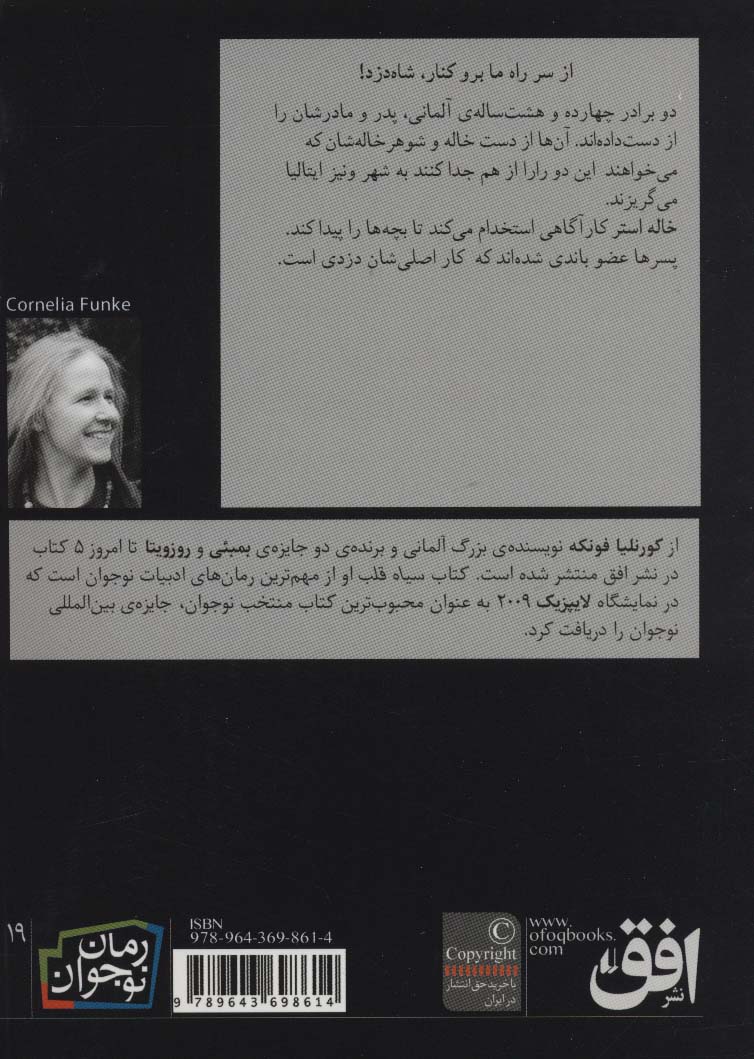 از سر راه ما برو کنار، شاه‌دزد!
دو برادر چهارده و هشت‌ساله‌ی آلمانی، پدر و مادرشان را
از دست‌داده‌اند. آن‌ها از دست خاله و شوهرخاله‌شان که
می‌خواهند این دو رارا از هم جدا کنند به شهر ونیز ایتالیا
می‌گریزند.
خاله استر کارآگاهی استخدام می‌کند تا بچه‌ها را پیدا کند.
پسرها عضو باندی شده‌اند که کار اصلی‌شان دزدی است.
Cornelia Funke
از کورنلیا فونکه نویسنده‌ی بزرگ آلمانی و برنده‌ی دو جایزه‌ی بمبئی و روزویتا تا امروز ۵ کتاب
در نشر افق منتشر شده است. کتاب سیاه قلب او از مهم‌ترین رمان‌های ادبیات نوجوان است که
در نمایشگاه لایپزیک ۲۰۰۹ به عنوان محبوب‌ترین کتاب منتخب نوجوان، جایزه‌ی بین‌المللی
نوجوان را دریافت کرد.
نشر افق
www.
ofoqbooks.
com
©
Copyright
با خرید حق انتشار
در ایران
ISBN
978-964-369-861-4
9 789643 698614
رمان
نوجوان
۱۹